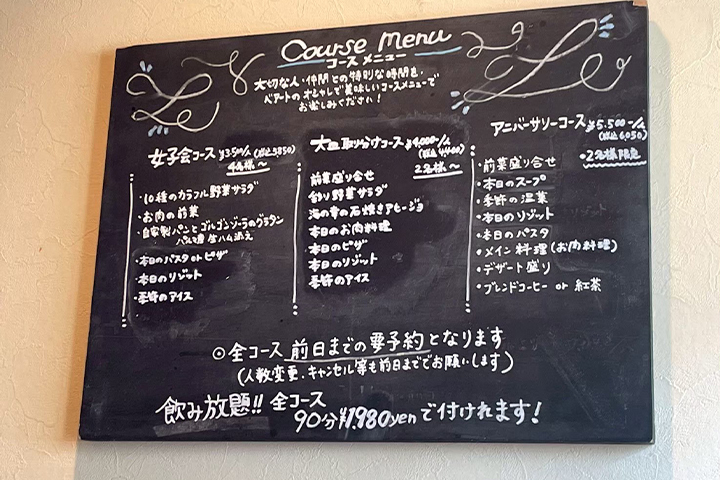 Course Menu
コースメニュー
大切な人・仲間との特別な時間を、
ベアートのオシャレで美味しいコースメニューで
お楽しみください！
女子会コース ¥3,500-/人 (税込3,850)
4名様〜
・10種のカラフル野菜サラダ
・お肉の前菜
・自家製パンとゴルゴンゾーラのグラタン
パルマ産 生ハム添え
・本日のパスタ or ピザ
・本日のリゾット
・季節のアイス
大皿取り分けコース ¥4,000-/人
(税込4,400)
2名様〜
前菜盛り合せ
釣り野菜サラダ
海の幸の石焼きアヒージョ
本日のお肉料理
本日のピザ
本日のリゾット
季節のアイス
アニバーサリーコース ¥5,500-/人
(税込6,050)
・2名様限定
・前菜盛り合せ
・本日のスープ
・季節の温菜
・本日のリゾット
・本日のパスタ
・メイン料理(お肉料理)
・デザート盛り
・ブレンドコーヒー or 紅茶
◎全コース 前日までの要予約となります
(人数変更、キャンセル等も前日まででお願いします)
飲み放題!! 全コース
90分¥1,980yenで付けれます！